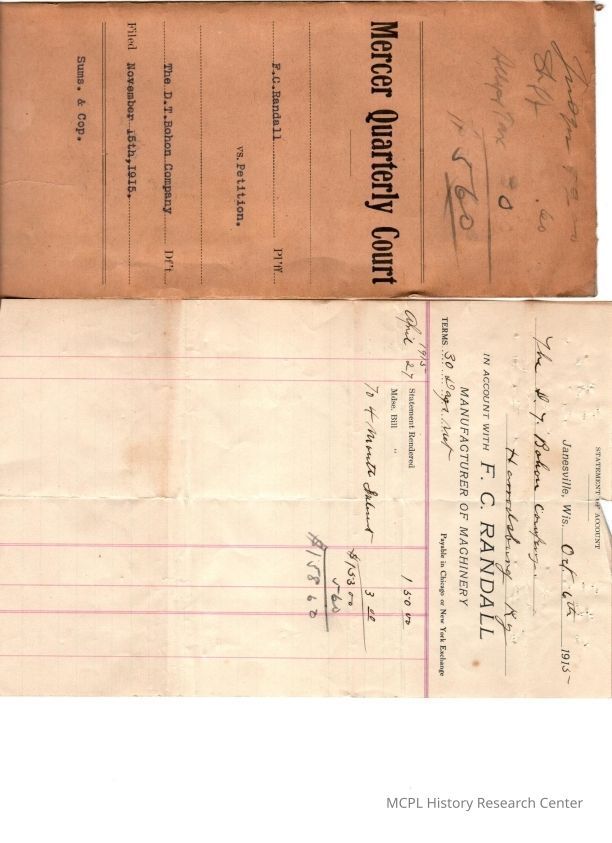 .60
30
560
Mercer Quarterly Court
F.C.Randall Pl'ff.
vs.Petition.
The D.T.Bohon Company Df't.
Filed November 15th,1915.
Sums. & Cop.
STATEMENT OF ACCOUNT
Janesville, Wis. Oct 6th 1915
The D. T. Bohon Company
Harrodsburg Ky
IN ACCOUNT WITH F. C. RANDALL
MANUFACTURER OF MACHINERY
TERMS 30 Days net Payable in Chicago or New York Exchange
1915
April 27 Statement Rendered
Mdse. Bill " 150 00
To 4 Months Interest 3 00
$153 00
5 60
$158 60
MCPL History Research Center